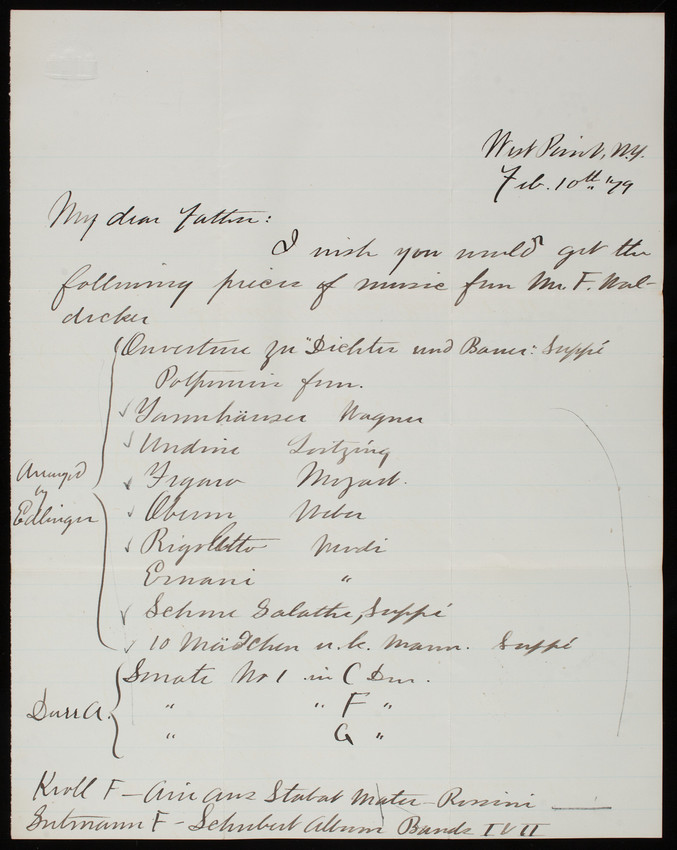 West Point, N.Y.
Feb. 10th "79
My dear Father:
I wish you would get the
following pieces of music from Mr. F. Wal-
decker
Ouverture zu "Dichter und Bauer: Suppé
Potpourri from.
Tannhäuser Wagner
Undine Lortzing
Figaro Mozart.
Oberon Weber
Rigoletto Verdi
Ernani "
Schöne Galathe, Suppé
10 Mädchen u. k. Mann. Suppé
Arranged
by
Edlinger
Durr A.
Sonate No 1 in C Dur.
" " F "
" G "
Kroll F – Air aus Stabat Mater – Rossini
Gutmann F – Schubert Album Bands I & II